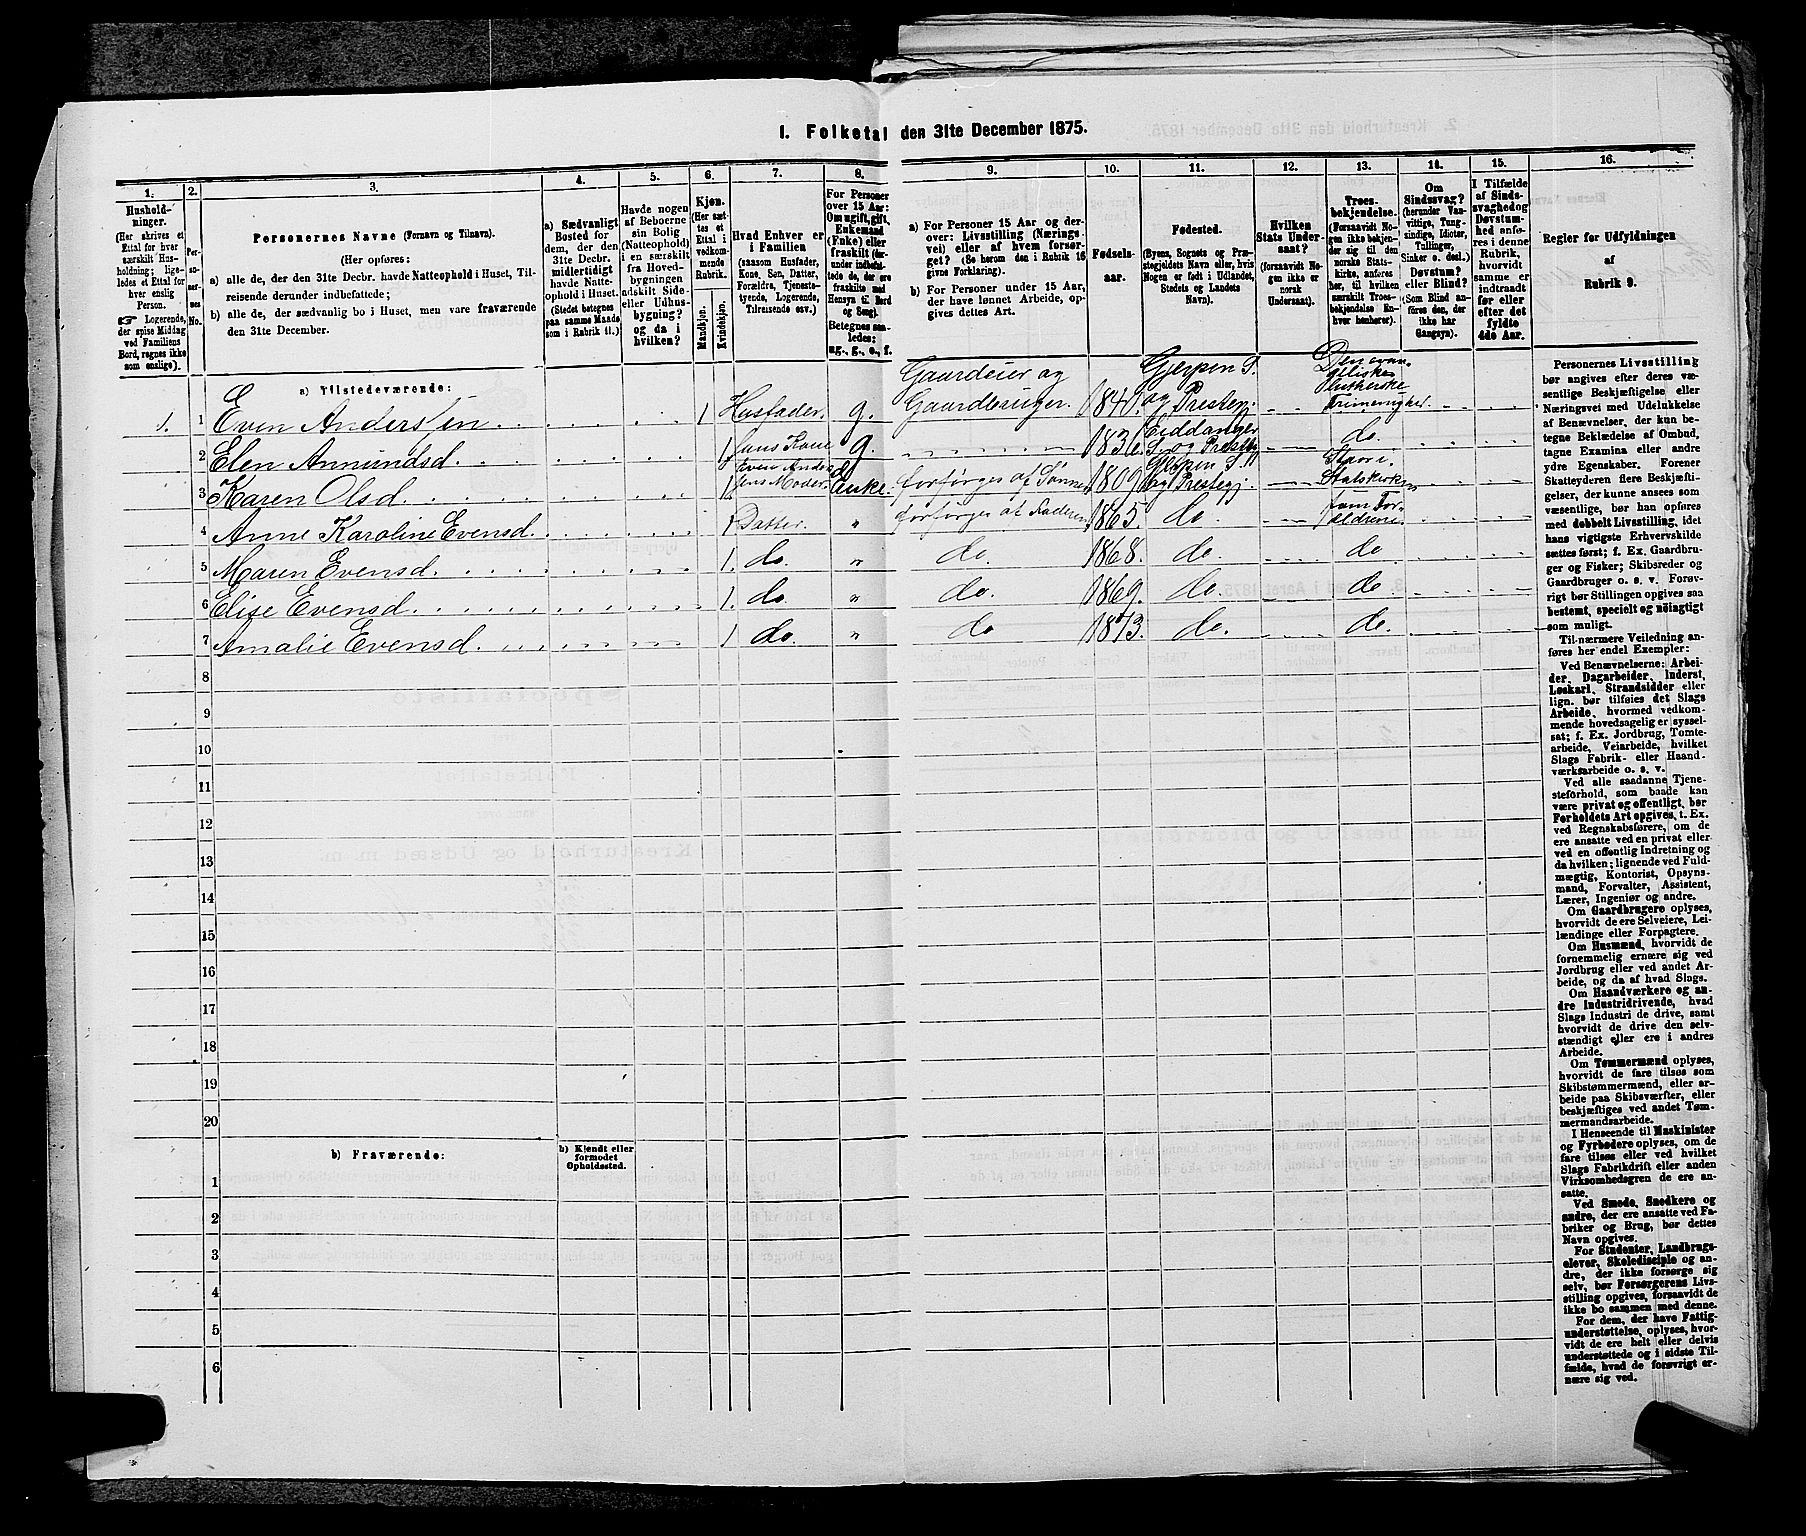 1. Folketal den 31te December 1875.
1.
2.
3.
4.
5.
6.
7.
8.
9.
10.
11.
12.
13.
14.
15.
16.
Hushold-
ninger.
(Her skrives et
Ettal for hver
særskilt Hus-
holdning; lige-
ledes et Ettal
for hver
enslig
Person.
☞ Logerende,
der spise Middag
ved Familiens
Bord, regnes ikke
som enslige).
Per-
so-
ner-
nes
No.
Personernes Navne (Fornavn og Tilnavn).
(Her opføres:
a) alle de, der den 31te Decbr. havde Natteophold i Huset, Til-
reisende derunder indbefattede;
b) alle de, der sædvanlig bo i Huset, men vare fraværende
den 31te December.
a) Sædvanligt
Bosted for
dem, der den
31te Decbr.
midlertidigt
havde Natte-
ophold i Huset.
(Stedet betegnes
paa samme Maade
som i Rubrik 11.)
Havde nogen
af Beboerne
sin Bolig
(Natteophold)
i en særskilt
fra Hoved-
bygningen
adskilt Side-
eller Udhus-
bygning?
og da i
hvilken?
Kjøn.
(Her sæt-
tes et
Ettal i
vedkom-
mende
Rubrik.
Mandkjøn.
Kvindekjøn.
Hvad Enhver er
i Familien
(saasom Husfader,
Kone, Søn, Datter,
Forældre, Tjeneste-
tyende, Logerende,
Tilreisende osv.)
For Personer
over 15 Aar:
Om ugift, gift,
Enkemand
(Enke) eller
fraskilt (her-
under indbefat-
tede de, der ere
fraskilte med
Hensyn til Bord
og Seng).
Betegnes saa-
ledes:
ug., g., e., f.
a) For Personer 15 Aar og der-
over: Livsstilling (Nærings-
vei) eller af hvem forsør-
get? (Se herom den i Rubrik 16
givne Forklaring).
b) For Personer under 15 Aar,
der have lønnet Arbeide, op-
gives dettes Art.
Fødsels-
aar.
Fødested.
(Byens, Sognets og Præ-
stegjeldets Navn eller, hvis
Nogen er født i Udlandet,
Stedets og Landets
Navn).
Hvilken
Stats Under-
saat?
(forsaavidt No-
gen ikke er
norsk
Undersaat).
Troes-
bekjendelse.
(Forsaavidt No-
gen ikke bekjen-
der sig til den
norske Stats-
kirke, anføres
her, til hvilken
særskilt Troes-
bekjendelse En-
hver henhører).
Om
Sindssvag?
(herunder Van-
vittige, Tung-
sindige, Idioter,
Tullinger,
Sinker o. desl.)
Døvstum?
eller Blind?
(Som Blind an-
føres den, der
ikke har
Gangsyn).
I Tilfælde
af Sinds-
svaghed og
Døvstum-
hed anfø-
res i denne
Rubrik,
hvorvidt
samme er
indtraadt
før eller
efter det
fyldte
4de Aar.
Regler for Udfyldningen
af
Rubrik 9.
a) Tilstedeværende:
1. 1 Even Andersen 1 Husfader. g. Gaardeier og Gaardbruger. 1840. Gjerpen S. og Prestegj. Den evangeliske lutherske Frimenighed.
2 Elen Amundsd. 1 hans Kone g. 1836. Eiddanger S. og Prestegj. do.
3 Karen Olsd. 1 Even Andersens Moder. Enke. forsørges af Sønnen 1809 Gjerpen S. og Prestegj. Staar i Statskirken
4 Anne Karoline Evensd. 1 Datter. " forsørges af Faderen 1865. do som Forældrene
5 Maren Evensd. 1. do. " do. 1868. do. do
6 Elise Evensd. 1. do. " do. 1869. do. do.
7 Amalie Evensd. 1. do. " do 1873. do. do.
8
9
10
11
12
13
14
15
16
17
18
19
20
b) Fraværende:
b) Kjendt eller
formodet
Opholdssted.
1
2
3
4
5
6
Personernes Livsstilling
bør angives efter deres væ-
sentlige Beskjæftigelse eller
Næringsvei med Udelukkelse
af Benævnelser, der kun be-
tegne Beklædelse af Ombud,
tagne Examina eller andre
ydre Egenskaber. Forener
Skatteyderen flere Beskjæfti-
gelser, der kunne ansees som
væsentlige, bør han opføres
med dobbelt Livsstilling, idet
hans vigtigste Erhvervskilde
sættes først; f. Ex. Gaardbru-
ger og Fisker; Skibsreder og
Gaardbruger o. s. v. Forøv-
rigt bør Stillingen opgives saa
bestemt, specielt og nøiagtigt
som muligt.
Til nærmere Veiledning an-
føres her endel Exempler:
Ved Benævnelserne: Arbei-
der, Dagarbeider, Inderst,
Løskarl, Strandsidder eller
lign. bør tilføies det Slags
Arbeide, hvormed vedkom-
mende hovedsagelig er syssel-
sat; f. Ex. Jordbrug, Tomte-
arbeide, Veiarbeide, hvilket
Slags Fabrik- eller Haand-
værksarbeide o. s. v.
Ved alle saadanne Tjene-
steforhold, som baade kan
være privat og offentligt, bør
Forholdets Art opgives, t. Ex.
ved Regnskabsførere, om de
ere ansatte ved en privat eller
ved en offentlig Indretning og
da hvilken; lignende ved Fuld-
mægtig, Kontorist, Opsyns-
mand, Forvalter, Assistent,
Lærer, Ingeniør og andre.
Om Gaardbrugere oplyses,
hvorvidt de ere Selveiere, Lei-
lændinge eller Forpagtere.
Om Husmænd, hvorvidt de
fornemmelig ernære sig ved
Jordbrug eller ved andet Ar-
beide, og da af hvad Slags.
Om Haandværkere og an-
dre Industridrivende, hvad
Slags Industri de drive, samt
hvorvidt de drive den selv-
stændigt eller ere i andres
Arbeide.
Om Tømmermænd oplyses,
hvorvidt de fare tilsøs som
Skibstømmermænd, eller ar-
beide paa Skibsværfter, eller
beskjæftiges ved andet Tøm-
mermandsarbeide.
I Henseende til Maskinister
og Fyrbødere oplyses, om de
fare tilsøs eller ved hvilket
Slags Fabrikdrift eller anden
Virksomhedsgren de ere an-
satte.
Ved Smede, Snedkere og
andre, der ere ansatte ved Fa-
briker og Brug, bør dettes
Navn opgives.
For Studenter, Landbrugs-
elever, Skoledisciple og an-
dre, der ikke forsørge sig
selv, bør Forsørgerens Livs-
stilling opgives, forsaavidt de
ikke bo sammen med denne.
For dem, der have Fattig-
understøttelse, oplyses, hvor-
vidt de ere helt eller delvis
understøttede og i sidste Til-
fælde, hvad de forøvrigt er-
nære sig ved.